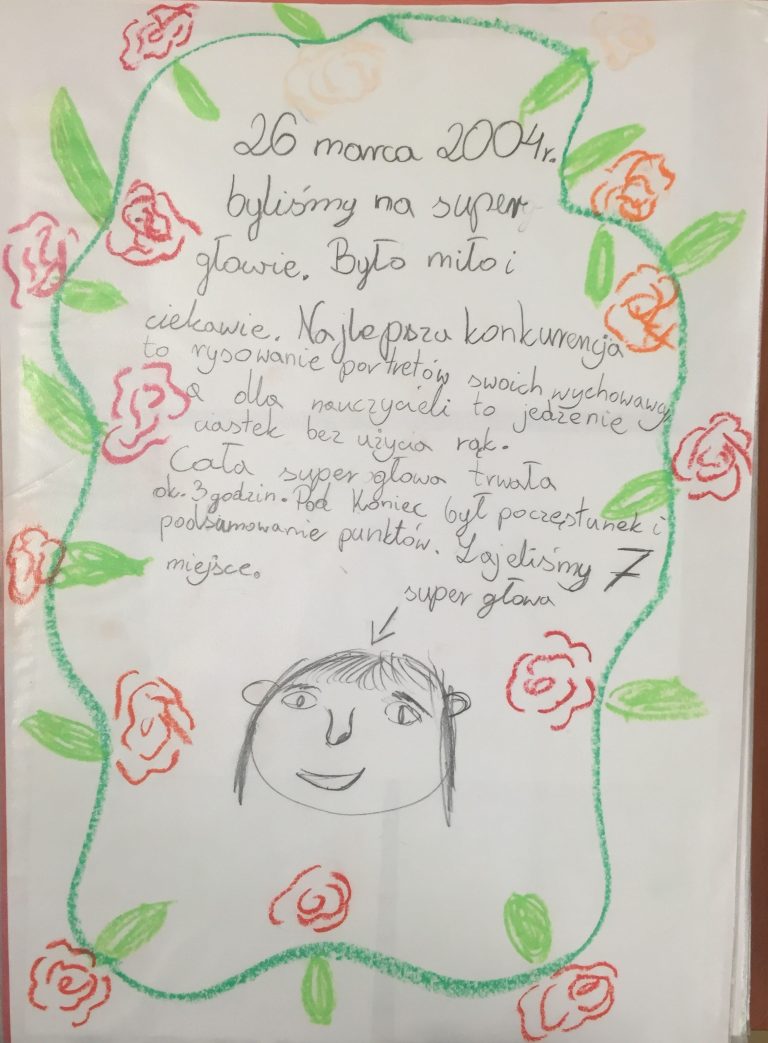 26 marca 2004r.
byliśmy na super
głowie. Było miło i
ciekawie. Najlepsza konkurencja
to rysowanie portretów swoich wychowawcy
a dla nauczycieli to jedzenie
ciastek bez użycia rąk.
Cała super głowa trwała
ok. 3 godzin. Pod koniec był poczęstunek i
podsumowanie punktów. Zajeliśmy 7
miejsce.
super głowa